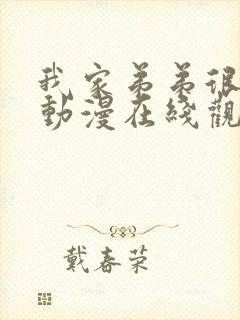 我家弟弟很
動漫在綫觀
戴春荣